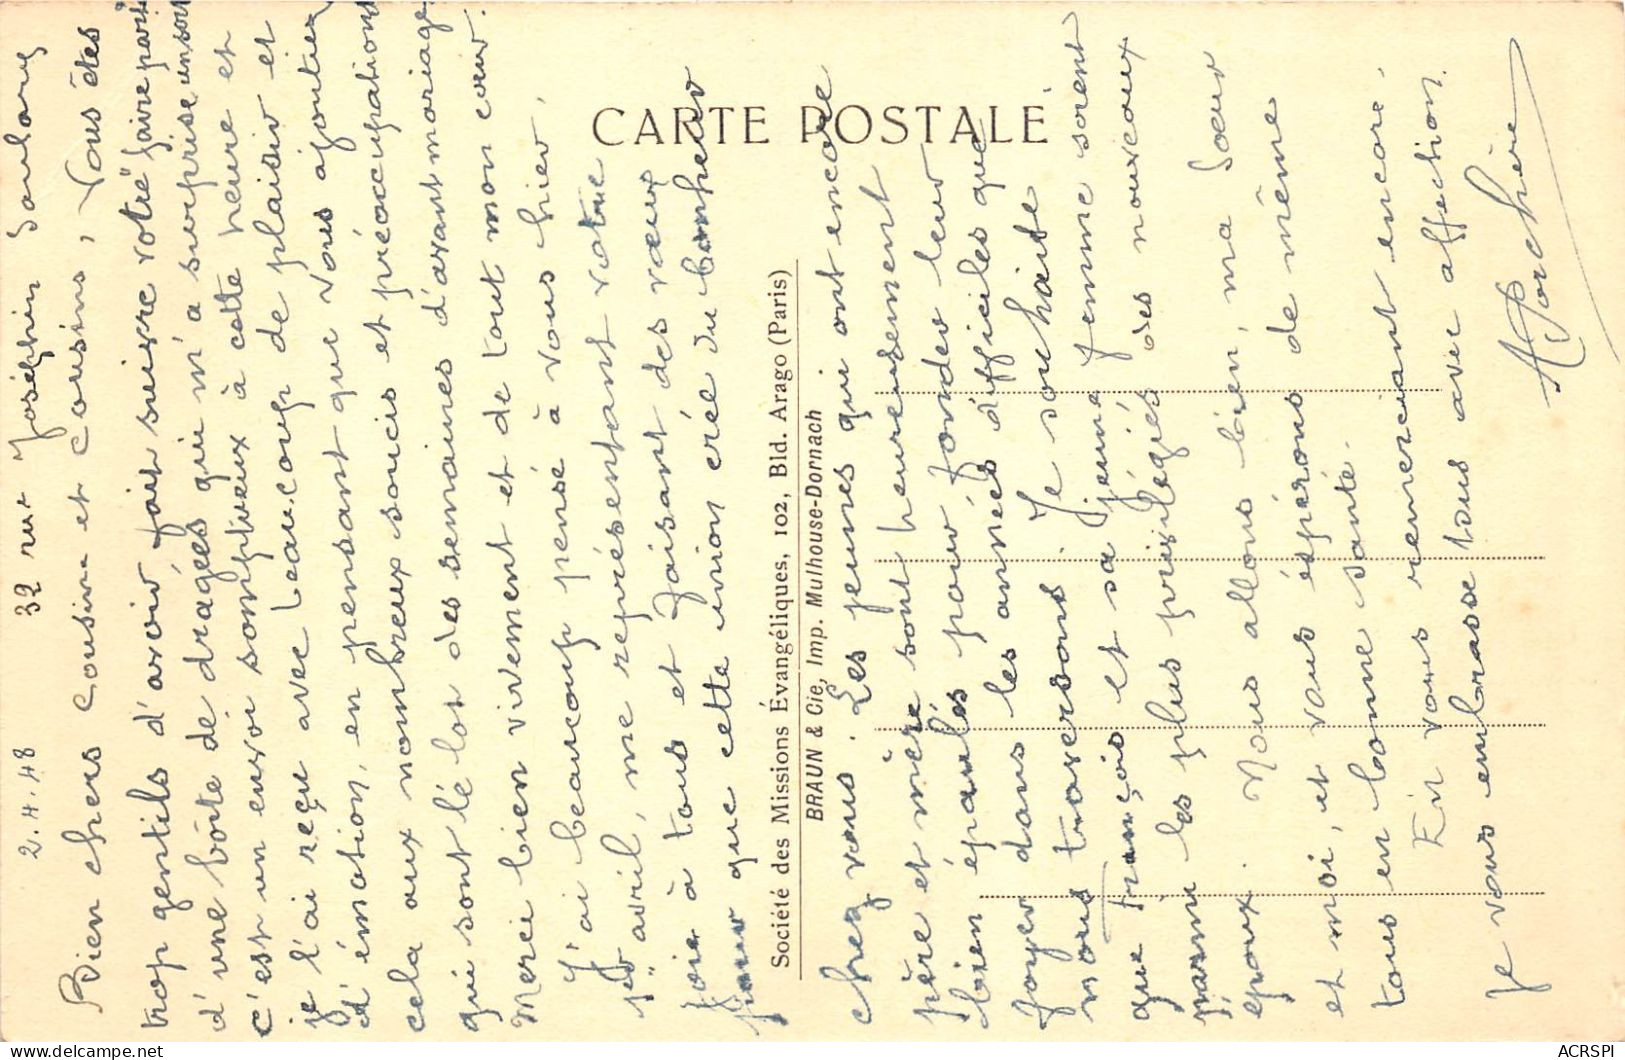 2.4.48 32 rue Joséphin Soulary
Bien chers cousine et cousins, Vous êtes
trop gentils d'avoir fait suivre votre "faire part"
d'une boîte de dragées qui m'a surprise un soir
c'est un envoi somptueux à cette heure et
je l'ai reçu avec beaucoup de plaisir et
d'émotion, en pensant que vous ajoutiez
cela aux nombreux soucis et préoccupations
qui sont le lot des semaines d'avant mariage.
Merci bien vivement et de tout mon cœur.
J'ai beaucoup pensé à vous hier,
1er avril, me représentant votre
joie à tous et faisant des vœux
pour que cette union crée du bonheur
chez vous. Les jeunes qui ont encore
père et mère sont heureusement
bien épaulés pour fonder leur
foyer dans les années difficiles que
nous traversons. Je souhaite
que François et sa jeune femme soient
parmi les plus privilégiés des nouveaux
époux. Nous allons bien, ma Sœur
et moi, et vous espérons de même
tous en bonne santé.
En vous remerciant encore,
je vous embrasse tous avec affection.
A Porchère
CARTE POSTALE
Société des Missions Évangéliques, 102, Bld. Arago (Paris)
BRAUN & Cie, Imp. Mulhouse-Dornach
ACRSPI